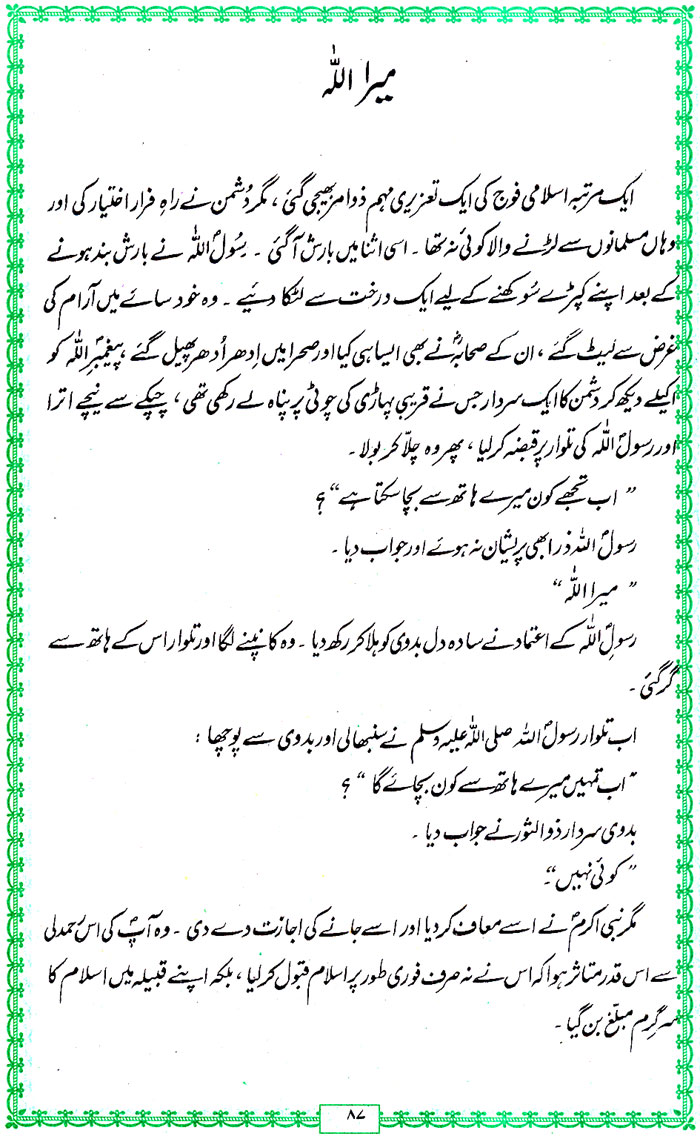 میرا اللہ
ایک مرتبہ اسلامی فوج کی ایک تعزیری مہم ذوامر بھیجی گئی، مگر دُشمن نے راہِ فرار اختیار کی اور
وہاں مسلمانوں سے لڑنے والا کوئی نہ تھا۔ اسی اثنا میں بارش آگئی۔ رسُولؐ اللہ نے بارش بند ہونے
کے بعد اپنے کپڑے سُوکھنے کے لیے ایک درخت سے لٹکا دئیے۔ وہ خود سائے میں آرام کی
غرض سے لیٹ گئے، ان کے صحابہؓ نے بھی ایسا ہی کیا اور صحرا میں اِدھر اُدھر پھیل گئے، پیغمبرؐ اللہ کو
اکیلے دیکھ کر دشمن کا ایک سردار جس نے قریبی پہاڑی کی چوٹی پر پناہ لے رکھی تھی، چپکے سے نیچے اترا
اور رسولؐ اللہ کی تلوار پر قبضہ کرلیا، پھر وہ چلّا کر بولا۔
” اب تجھے کون میرے ہاتھ سے بچا سکتا ہے“؟
رسولؐ اللہ ذرا بھی پریشان نہ ہوئے اور جواب دیا۔
” میرا اللہ “
رسولؐ اللہ کے اعتماد نے سادہ دل بدوی کو ہلا کر رکھ دیا۔ وہ کانپنے لگا اور تلوار اس کے ہاتھ سے
گر گئی۔
اب تلوار رسولؐ اللہ صلی اللہ علیہ وسلم نے سنبھالی اور بدوی سے پوچھا :
”اب تمہیں میرے ہاتھ سے کون بچائے گا “ ؟
بدوی سردار ذوالثور نے جواب دیا۔
” کوئی نہیں“۔
مگر نبی اکرمؐ نے اسے معاف کر دیا اور اسے جانے کی اجازت دے دی۔ وہ آپؐ کی اس رحمدلی
سے اس قدر متاثر ہوا کہ اس نے نہ صرف فوری طور پر اسلام قبول کرلیا، بلکہ اپنے قبیلہ میں اسلام کا
سرگرم مبلّغ بن گیا۔
۸۷